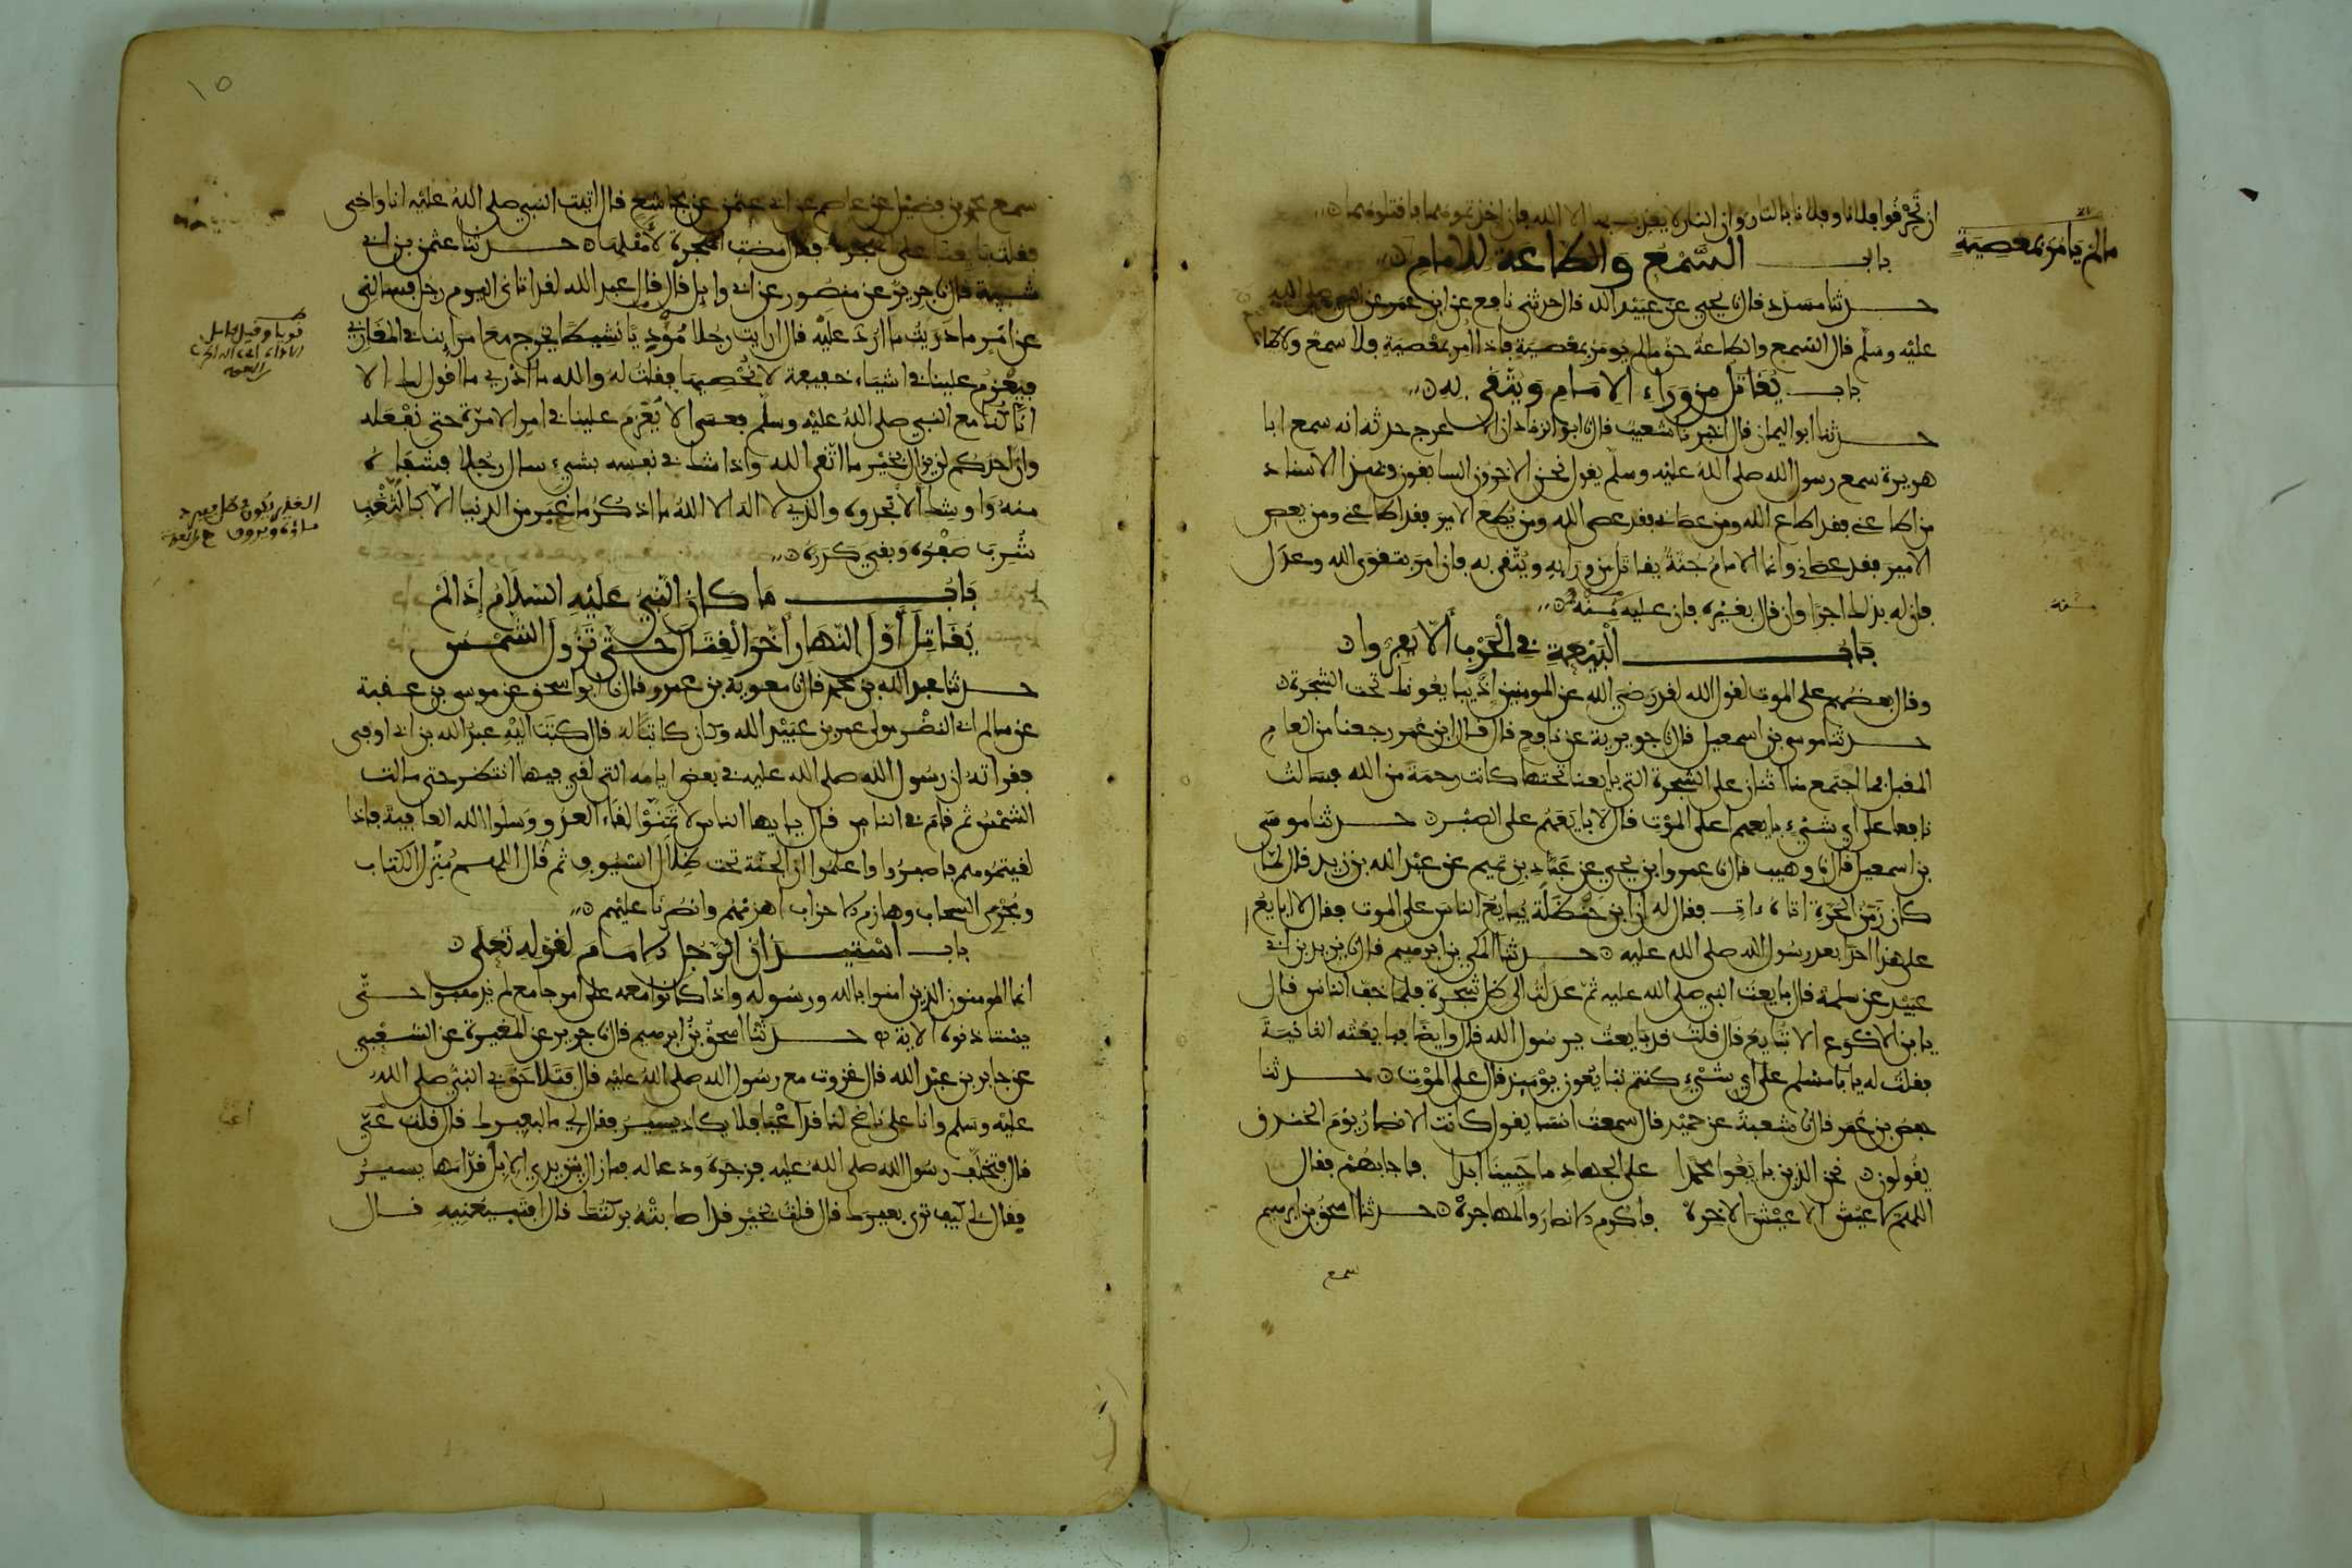 ان تحرقوا فلانا وفلانا بالنار وان النار لا يعذب بها الا الله فان اخذتموهما فاقتلوهما
باب السَّمْعِ وَالطَّاعَةِ للامام
ما لم يامر بمعصية
حدثنا مسدد قال نا يحيى عن عبيد الله قال حدثني نافع عن ابن عمر عن النبي صلى الله
عليه وسلم قال السمع والطاعة حق ما لم يومر بمعصية فاذا امر بمعصية فلا سمع ولا طاعة
باب يُقَاتَل من وَرَاءِ الامام وَيُتَّقَى به
حدثنا ابو اليمان قال اخبرنا شعيب قال نا ابو الزناد ان الاعرج حدثه انه سمع ابا
هريرة سمع رسول الله صلى الله عليه وسلم يقول نحن الاخرون السابقون وبهذا الاسناد
من اطاعني فقد اطاع الله ومن عصاني فقد عصى الله ومن يُطع الامير فقد اطاعني ومن يعص
الامير فقد عصاني وانما الامام جنة يقاتل من ورايه ويُتّقى به فان امر بتقوى الله وعدل
فان له بذلك اجرا وان قال بغيره فان عليه مِنْه
باب الْبَيْعَةِ في الْحَرْبِ ألّا يفروا
وقال بعضهم على الموت لقول الله لقد رضي الله عن المومنين اذ يبايعونك تحت الشجرة
حدثنا موسى بن اسمعيل قال نا جويرية عن نافع قال قال ابن عمر رجعنا من العام
المقبل فما اجتمع منا اثنان على الشجرة التي بايعنا تحتها كانت رحمة من الله فسالت
نافعا على اي شيء بايعهم اعلى الموت قال لا بايعهم على الصبر حدثنا موسى
بن اسمعيل قال نا وهيب قال نا عمرو بن يحيى عن عَبّاد بن تميم عن عبد الله بن زيد قال لما
كان زَمَن الحرة اتاه ءات فقال له ان ابن حنظلة يُبايع الناس على الموت فقال لا ابايع
على هذا احدا بعد رسول الله صلى الله عليه حدثنا المكي بن ابرهيم قال نا يزيد بن ابي
عبيد عن سلمة قال بايعت النبي صلى الله عليه ثم عدلت الى ظل شجرة فلما خف الناس قال
يا بن الاكوع الا تُبايع قال قلت قد بايعت يرسول الله قال وايضا فبايعته الثانية
فقلت له يا با مسلم على اي شيء كنتم تبايعون يومئذ قال على الموت حدثنا
حفص بن عمر قال نا شعبة عن حميد قال سمعت انسا يقول كانت الانصار يوم الخندق
يقولون نحن الذين بايعوا محمدا على الجهاد ما حيينا ابدا فاجابهم فقال
اللهم لا عيش الا عيش الاخرة فاكرم الانصار والمهاجرة حدثنا اسحق بن ابرهيم
سمع
١٥
سمع محمد بن فضيل عن عاصم عن ابي عثمن عن مجاشع قال اتيت النبي صلى الله عليه انا واخي
فقلت بايعنا على الهجرة فقال مضت الهجرة لأهلها حدثنا عثمن بن ابي
شيبة قال نا جرير عن منصور عن ابي وايل قال قال عبد الله لقد اتاني اليوم رجل فسالني
عن امر ما دريت ما ارد عليه فقال ارايت رجلا مُؤْدِيًا نشيطا يخرج مع امراينا في المغازي
فيعزم علينا في اشياء خفيفة لا نحصيها فقلت له والله ما ادري ما اقول لك الا
انا كنا مع النبي صلى الله عليه وسلم فعسى الا يعزم علينا في امر الا مرة حتى نفعله
وان احدكم لن يزال بخير ما اتقى الله واذا شك في نفسه بشيء سال رجلا فشفاه
منه واوشك الا تجدوه والذي لا اله الا الله ما اذكر ما غبر من الدنيا الا كالثغب
شُرِبَ صَفْوُه وبقي كدره
بَابُ مَا كان النبي عَلَيْهِ السَّلَامُ إذَا لَمْ
يُقَاتِلْ أوّلَ النّهار أخّرَ القتَالَ حَتّى تَزُولَ الشّمْس
حدثنا عبد الله بن محمد قال نا معوية بن عمرو قال نا ابو اسحق عن موسى بن عقبة
عن سالم ابي النضر مولى عمر بن عبيد الله وكان كاتبا له قال كتب اليه عبد الله بن ابي اوفى
فقراته ان رسول الله صلى الله عليه في بعض ايامه التي لقي فيها انتظر حتى مالت
الشمس ثم قام في الناس قال يايها الناس لا تمنوا لقاء العدو وسلوا الله العافية فاذا
لقيتموهم فاصبروا واعلموا ان الجنة تحت ظلال السيوف ثم قال اللهم مُنزل الكتاب
ومجري السحاب وهازم الاحزاب اهزمهم وانصرنا عليهم
باب اسْتِيذان الرّجل الامام لقوله تعلى
انما المومنون الذين امنوا بالله ورسوله واذا كانوا معه على امر جامع لم يذهبوا حتى
يستاذنوه الاية حدثنا اسحق بن ابرهيم قال نا جرير عن المغيرة عن الشعبي
عن جابر بن عبد الله قال غزوت مع رسول الله صلى الله عليه قال فتلاحق في النبي صلى الله
عليه وسلم وانا على ناضح لنا قد اعيا فلا يكاد يسير فقال لي ما لبعيرك قال قلت عيي
قال فتخلف رسول الله صلى الله عليه فزجره ودعا له فما زال بين يدي الابل قدامها يسير
فقال لي كيف ترى بعيرك قال قلت بخير قد اصابته بركتك قال افتبيعنيه قال